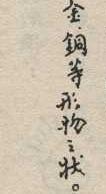 金銅等形物之状。